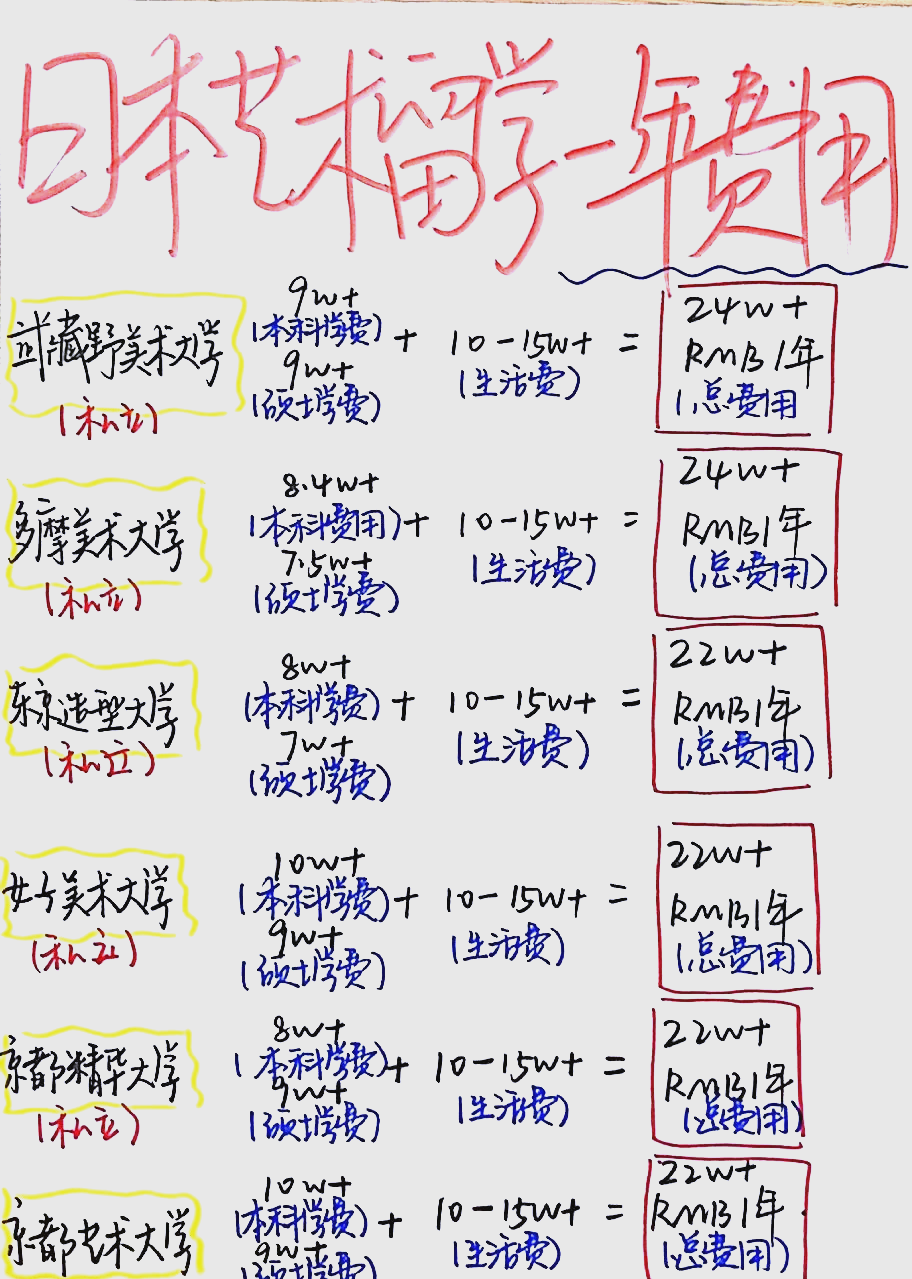 日本艺术留学一年费用
武藏野美术大学
(私立)
9w+
(本科学费)
9w+
(硕士学费)
+
10-15w+
(生活费)
=
24w+
RMB/年
(总费用
多摩美术大学
(私立)
8.4w+
(本科费用)
7.5w+
(硕士学费)
+
10-15w+
(生活费)
=
24w+
RMB/年
(总费用)
东京造型大学
(私立)
8w+
(本科学费)
7w+
(硕士学费)
+
10-15w+
(生活费)
=
22w+
RMB/年
(总费用)
女子美术大学
(私立)
10w+
(本科学费)
9w+
(硕士学费)
+
10-15w+
(生活费)
=
22w+
RMB/年
(总费用)
京都精华大学
(私立)
8w+
(本科学费)
9w+
(硕士学费)
+
10-15w+
(生活费)
=
22w+
RMB/年
(总费用)
京都艺术大学
10w+
(本科学费)
9w+
(硕士学费)
+
10-15w+
(生活费)
=
22w+
RMB/年
(总费用)